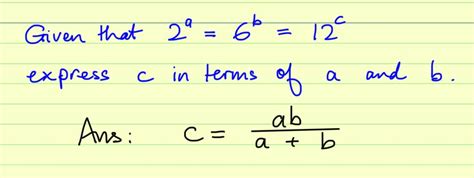 Given that 2^a = 6^b = 12^c
express c in terms of a and b.
Ans: c = ab / (a + b)